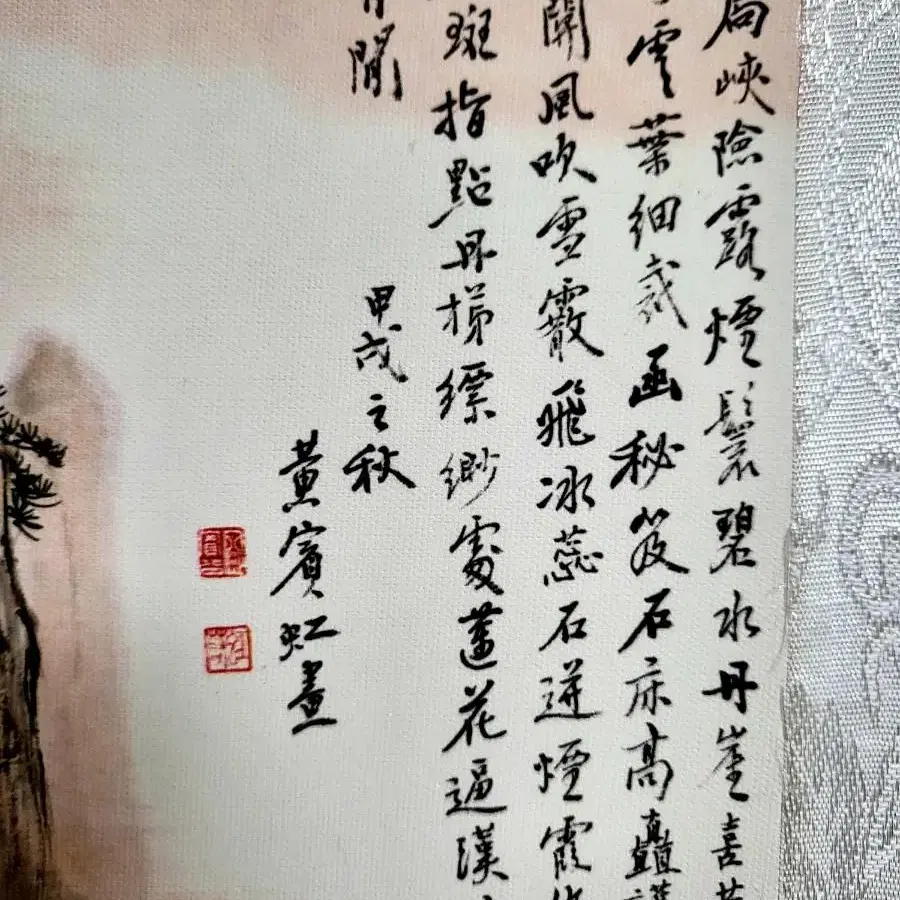 局峽險露煙鬟碧水丹崖喜
雲葉細裁函秘笈石床高矗
開風吹雪霰飛冰蕊石迸煙霞
斑指點丹梯縹緲處蓮花逼漢
閒
甲戌之秋
黃賓虹畫